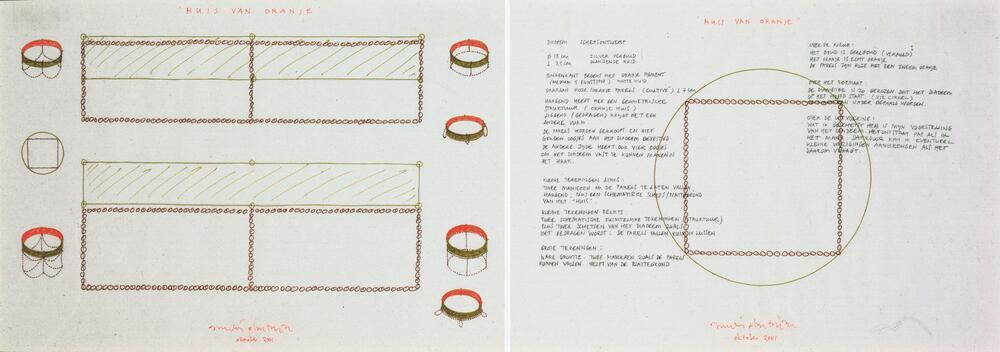 "HUIS VAN ORANJE"
oktober 2001
"HUIS VAN ORANJE"
DIADEEM SCHETSONTWERP
Ø 15 cm ZILVER VERGULD
↓ 3,5 cm GLANZENDE HUID
BINNENKANT BEDEKT MET ORANJE PIGMENT
MATTE HUID
HANGEND HEEFT HET EEN GEOMETRISCHE
STRUKTUUR (ORANJE HUIS)
LIGGEND (GEDRAGEN) KRIJGT HET EEN
ANDERE VORM
DE PARELS WORDEN GEKNOOPT EN MET
GOUDEN OOGJES AAN HET DIADEEM BEVESTIGD
DE ANDERE ZIJDE HEEFT OOK VIER OOGJES
OM HET DIADEEM VAST TE KUNNEN MAKEN IN
HET HAAR.
KLEINE TEKENINGEN LINKS
TWEE MANIEREN OM DE PARELS TE LATEN VALLEN,
HANGEND, PLUS EEN SCHEMATISCHE SCHETS/PLATTEGROND
VAN HET "HUIS".
KLEINE TEKENINGEN RECHTS
TWEE SCHEMATISCHE RUIMTELIJKE TEKENINGEN (STRUKTUUR)
PLUS TWEE SCHETSEN VAN HET DIADEEM ZOALS
HET GEDRAGEN WORDT: DE PARELS VALLEN LUSSEN.
GROTE TEKENINGEN:
WARE GROOTTE. TWEE MANIEREN ZOALS DE PARELS
KUNNEN VALLEN. HELFT VAN DE PLATTEGROND
OVER DE KLEUR:
HET GOUD IS GEELGOUD (VERGULD)
HET ORANJE IS ECHT ORANJE
DE PARELS ZIJN ROZE MET EEN ZWEEM ORANJE
OVER HET FORMAAT
DE DIAMETER IS ZO GEKOZEN DAT HET DIADEEM
OP HET HOOFD STAAT. (ZIE CIRKEL)
KAN NADER BEPAALD WORDEN.
OVER DE UITVOERING:
WAT IK GESCHETST HEB IS MIJN VOORSTELLING
VAN HET DIADEEM. HET ONTSTAAT PAS ALS IK
HET MAAK. DAARDOOR KAN IK EVENTUEEL
KLEINE WIJZIGINGEN AANBRENGEN ALS HET
DAAROM VRAAGT.
oktober 2001